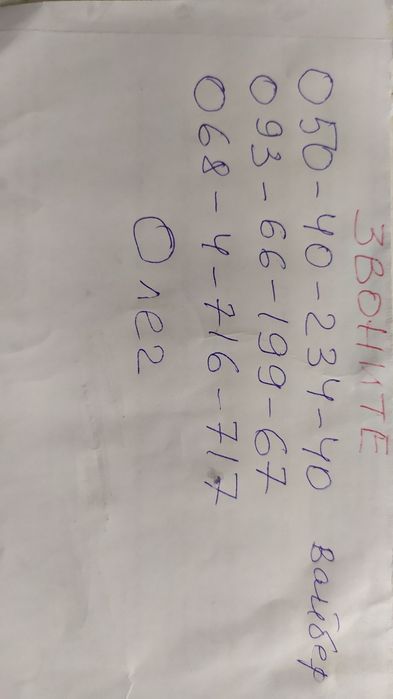 ЗВОНИТЕ
050-40-234-40 вайбер
093-66-199-67
068-4-716-717
Олег